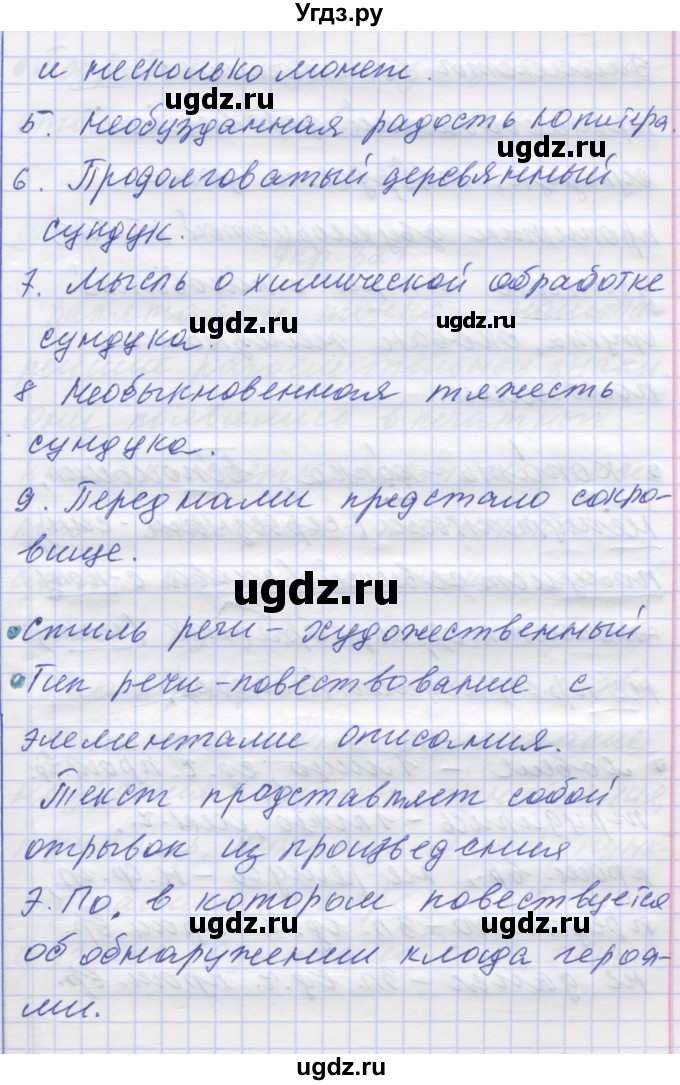 Угдз.ру
и несколько монет.
ugdz.ru
5. Необузданная радость Юпитера.
ugdz.ru
6. Продолговатый деревянный
сундук.
7. Мысль о химической обработке
ugdz.ru ugdz.ru
сундука.
8 Необыкновенная тяжесть
сундука.
9. Перед нами предстало сокро-
вище.
ugdz.ru
Стиль речи - художественный
Тип речи - повествование с
элементами описания.
Текст представляет собой
отрывок из произведения
Э. По, в котором повествуется
ugdz.ru ugdz.ru
об обнаружении клада героя-
ми.
ugdz.ru